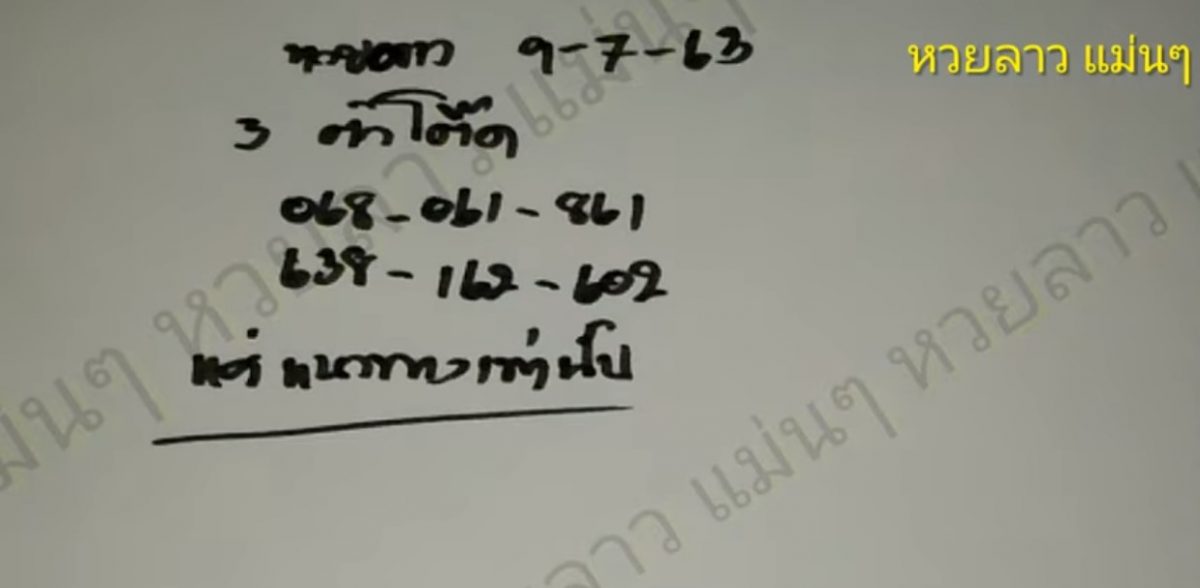 หวยลาว 9-7-63
หวยลาว แม่นๆ
3 ตัวโต๊ด
068-061-861
638-162-602
แค่ แนวทางเท่านั้น
หวยลาว แม่นๆ
หวยลาว แม่นๆ